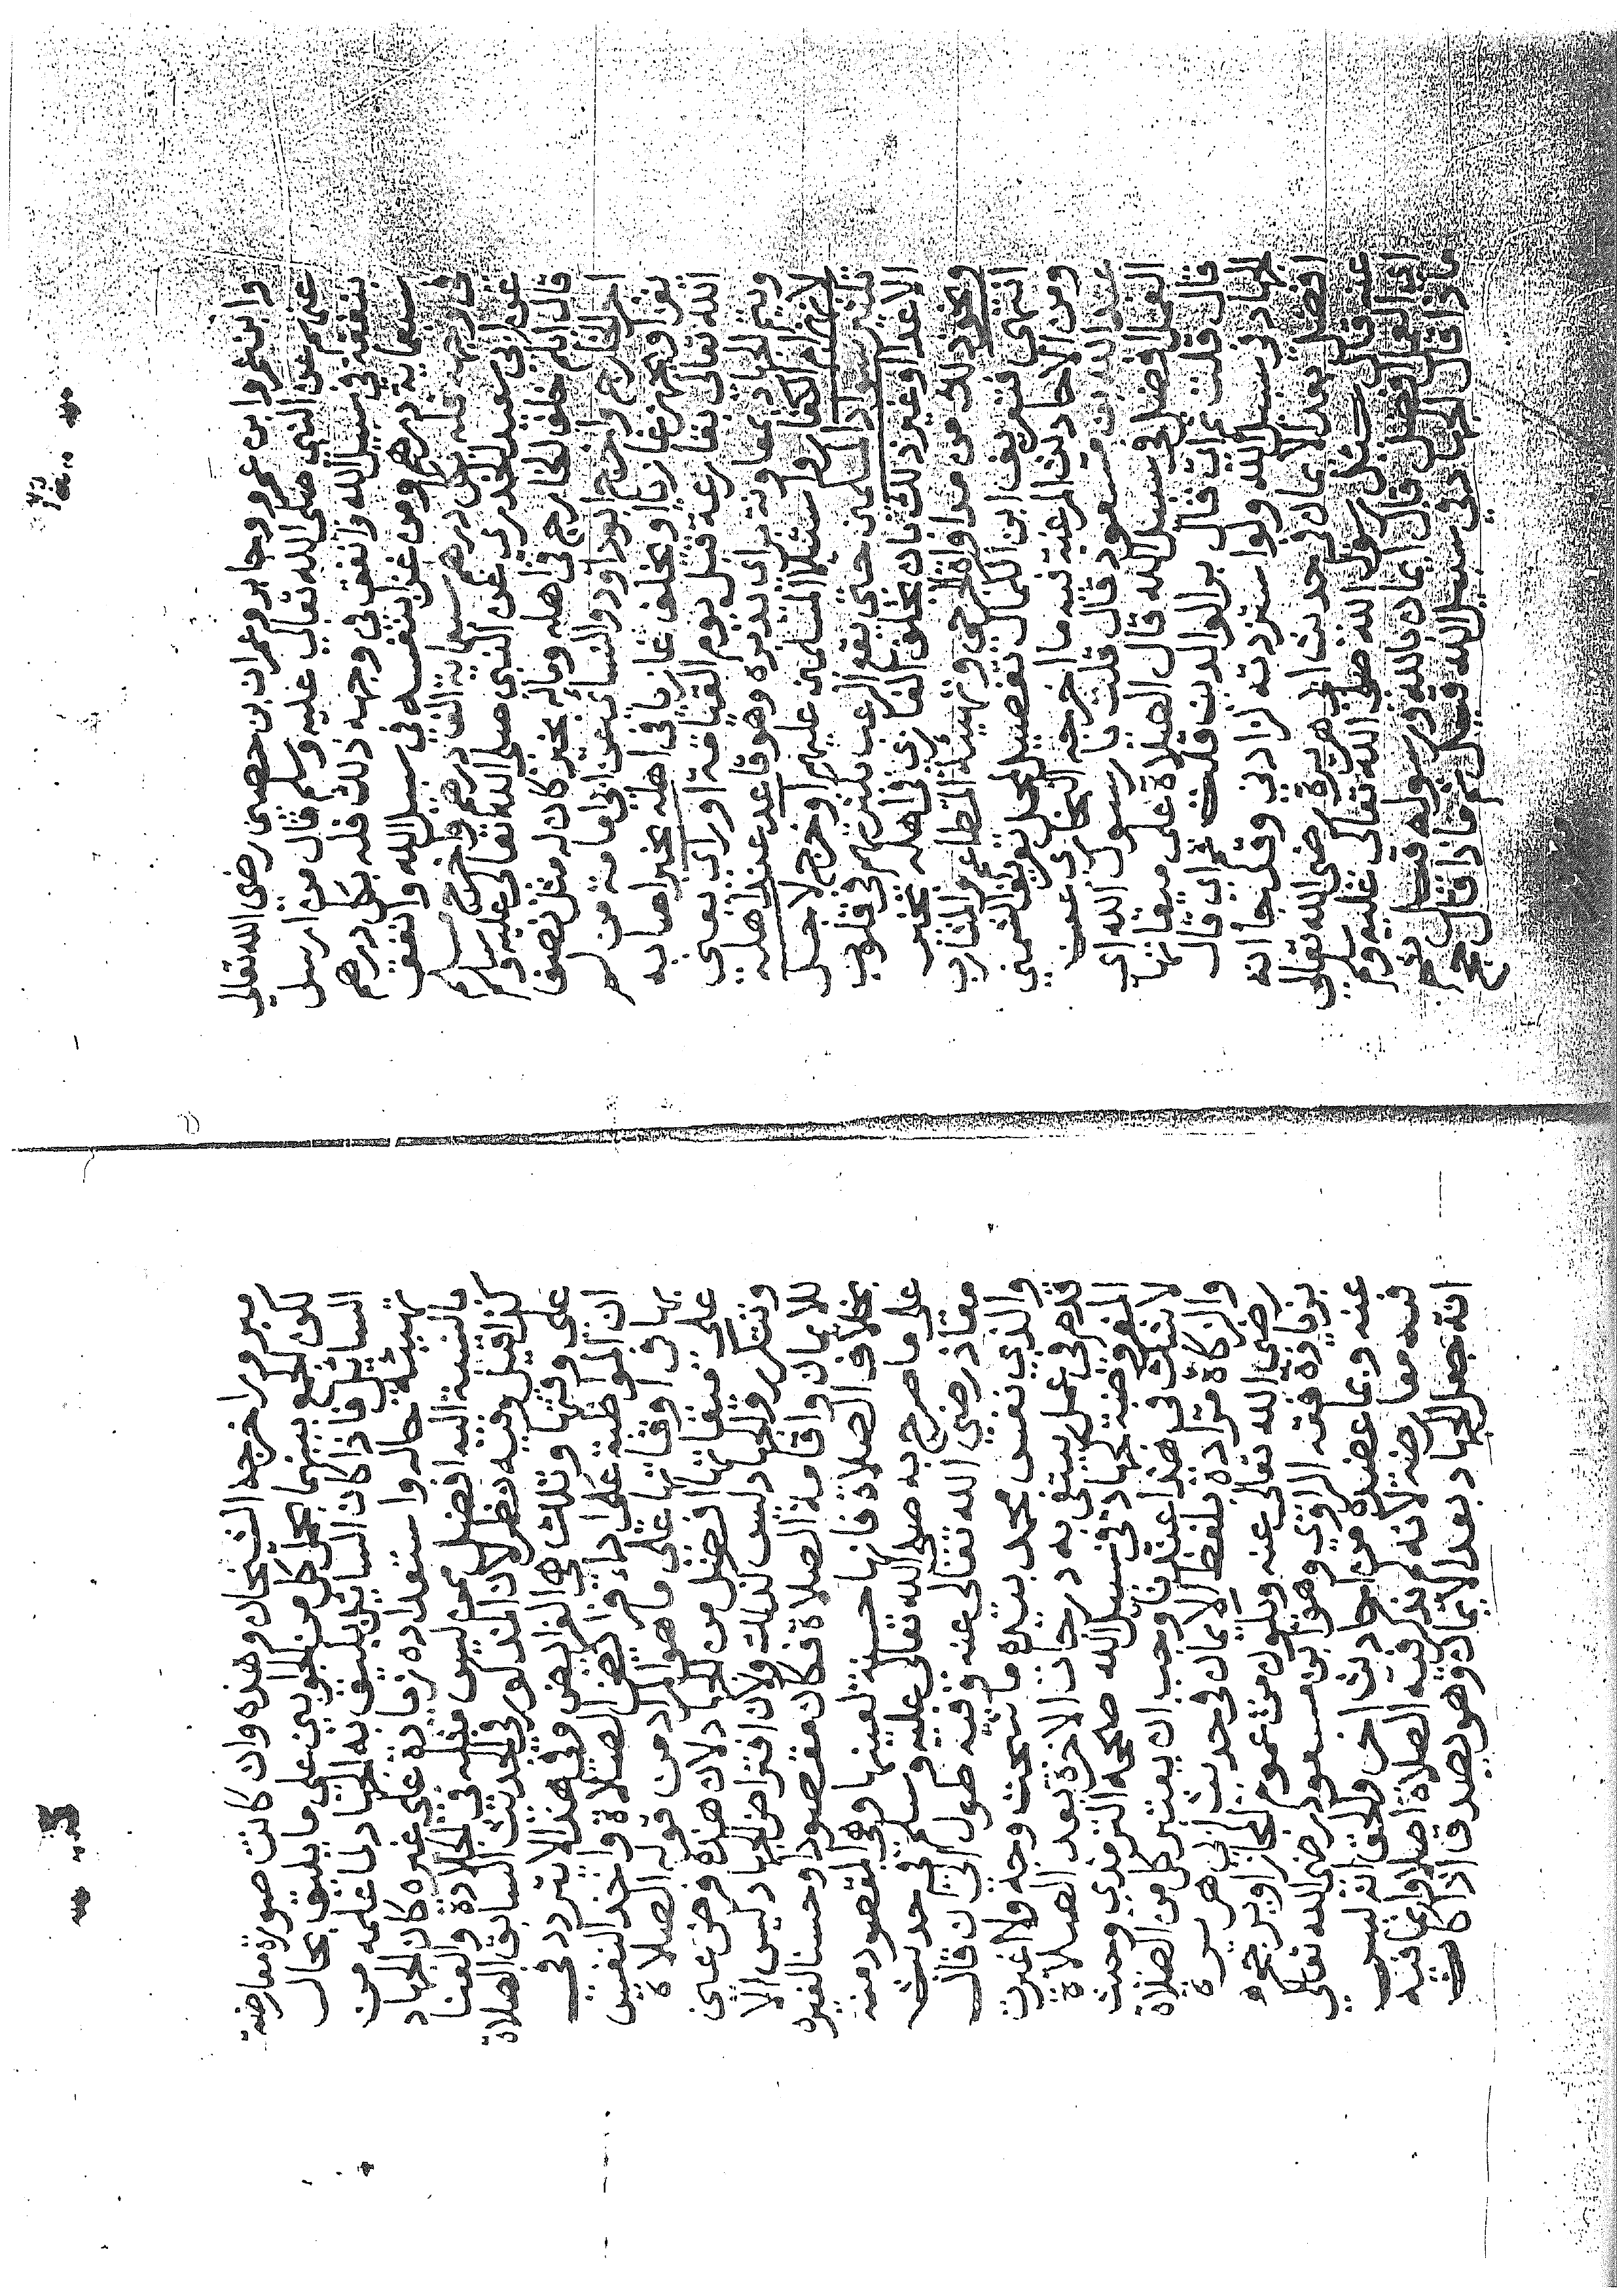 وابن عمر وابن عمرو وجابر وعمران بن حصين رضي الله تعالى
عنهم عن النبي صلى الله تعالى عليه وسلم قال من ارسل
بنفقة في سبيل الله وانفق في وجهه ذلك فله بكل درهم
سبعماية درهم ومن غزا بنفسه في سبيل الله وانفق
في وجهه فله بكل درهم سبعماية الف درهم واخرج مسلم
عن ابي سعيد الخدري عن النبي صلى الله تعالى عليه وسلم
قال ايكم خلف الخارج في اهله وماله بخير كان له مثل نصف
اجر الخارج واخرج ابو داود والنسائ عن ابي امامة من لم
يغز او يجهز غازيا او يخلف غازيا في اهله بخير اصابه
الله تعالى بقارعة قبل يوم القيامة او راى بعنى
ويتم الجهاد بمعاونة راى يدبره وهو قاعد عند اهله
لانهزام الكفار واستيلا المسلمين عليهم او خرج لاجل
تكثير سواد المسلمين حتى يقع الرعب بكثرتهم في قلوب
الاعدا وغير ذلك بان يخلف الغازي في اهله بخير
ونحو ذلك من مداواة الجرحى وتهيئة المطاعم والمشارب
انتهى فتعريف ابن الكمال تفصيل لمجمل تعريف الشمني
ومن الاحاديث المرغبة فيه ما اخرجه البخاري عن
عبد الله بن مسعود قال قلت يا رسول الله اي
العمل افضل في سبيل الله قال الصلاة على ميقاتها
قال قلت ثم اي قال بر الوالدين قلت ثم اي قال
الجهاد في سبيل الله ولو استزدته لزادني وقد جا انه
افضل بعد الايمان في حديث ابي هريرة رضي الله تعالى
عنه قال سئل رسول الله صلى الله تعالى عليه وسلم
اي العمل افضل قال ايمان بالله ورسوله قيل ثم
ماذا قال الجهاد في سبيل الله قيل ثم ماذا قال حج
مبرور اخرجه الشيخان وهذه وان كانت صورة معارضة
لكن الجمع بينهما بحمل كل من الجوابين على ما يليق بحال
السائل فاذا كان السائل يليق به الجهاد لما علمه من
تهيئته حاله واستعداده زيادة على غيره كان الجهاد
بالنسبة اليه افضل ممن ليس مثله في الجلادة والغنا
كذا قيل وفيه نظر لان المذكور في الحديث السابق الصلاة
على وقتها وتلك هي الفرايض وفي هذا لا يتردد في
ان المواظبة على اداء فرايض الصلاة واخذ النفس
بها في اوقاتها على ما هو المراد من قوله الصلاة
على ميقاتها افضل من الجهاد لان هذه فرض عين
وتتكرر والجهاد ليس كذلك ولان افتراض الجهاد ليس الا
للايمان واقامة الصلاة فكان مقصودا وحسنا لغيره
بخلاف الصلاة فانها حسنة لعينها وهي المقصود منه
على ما صرح به صلى الله تعالى عليه وسلم في حديث
معاذ رضي الله تعالى عنه وفيه طول الى ان قال
والذي نفس محمد بيده ما شحب وجه ولا اغبرت
قدم في عمل يبتغى به درجات الاخرة بعد الصلاة
المفروضة كجهاد في سبيل الله صححه الترمذي وحيث
لا شك في هذا عندنا وجب ان يعتبر كل من الصلاة
والزكاة مرادة بلفظ الايمان في حديث ابي هريرة
رضي الله تعالى عنه ويكون من عموم المجاز او يرجح
بزيادة فقه الراوي وهو ابن مسعود رضي الله تعالى
عنه وبما عضده من احاديث اخر والحق انه ليس
فيه معارضة لانه لم يذكر فيه الصلاة اصلا وانما فيه
انه جعل الجهاد بعد الايمان وهو يصدق اذا كانت